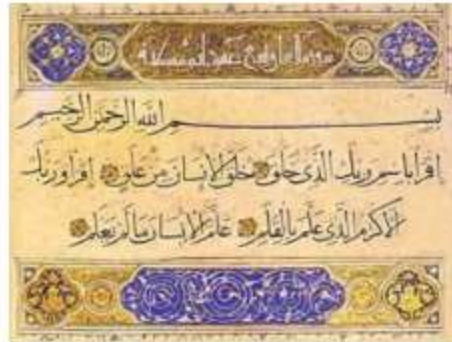 بسم الله الرحمن الرحيم
اقرأ باسم ربك الذي خلق خلق الإنسان من علق اقرأ وربك
الأكرم الذي علم بالقلم علم الإنسان ما لم يعلم